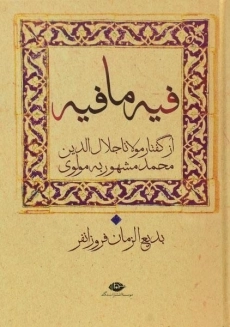 فیه ما فیه
از گفتار مولانا جلال‌الدین
محمد مشهور به مولوی
بدیع‌الزمان فروزانفر